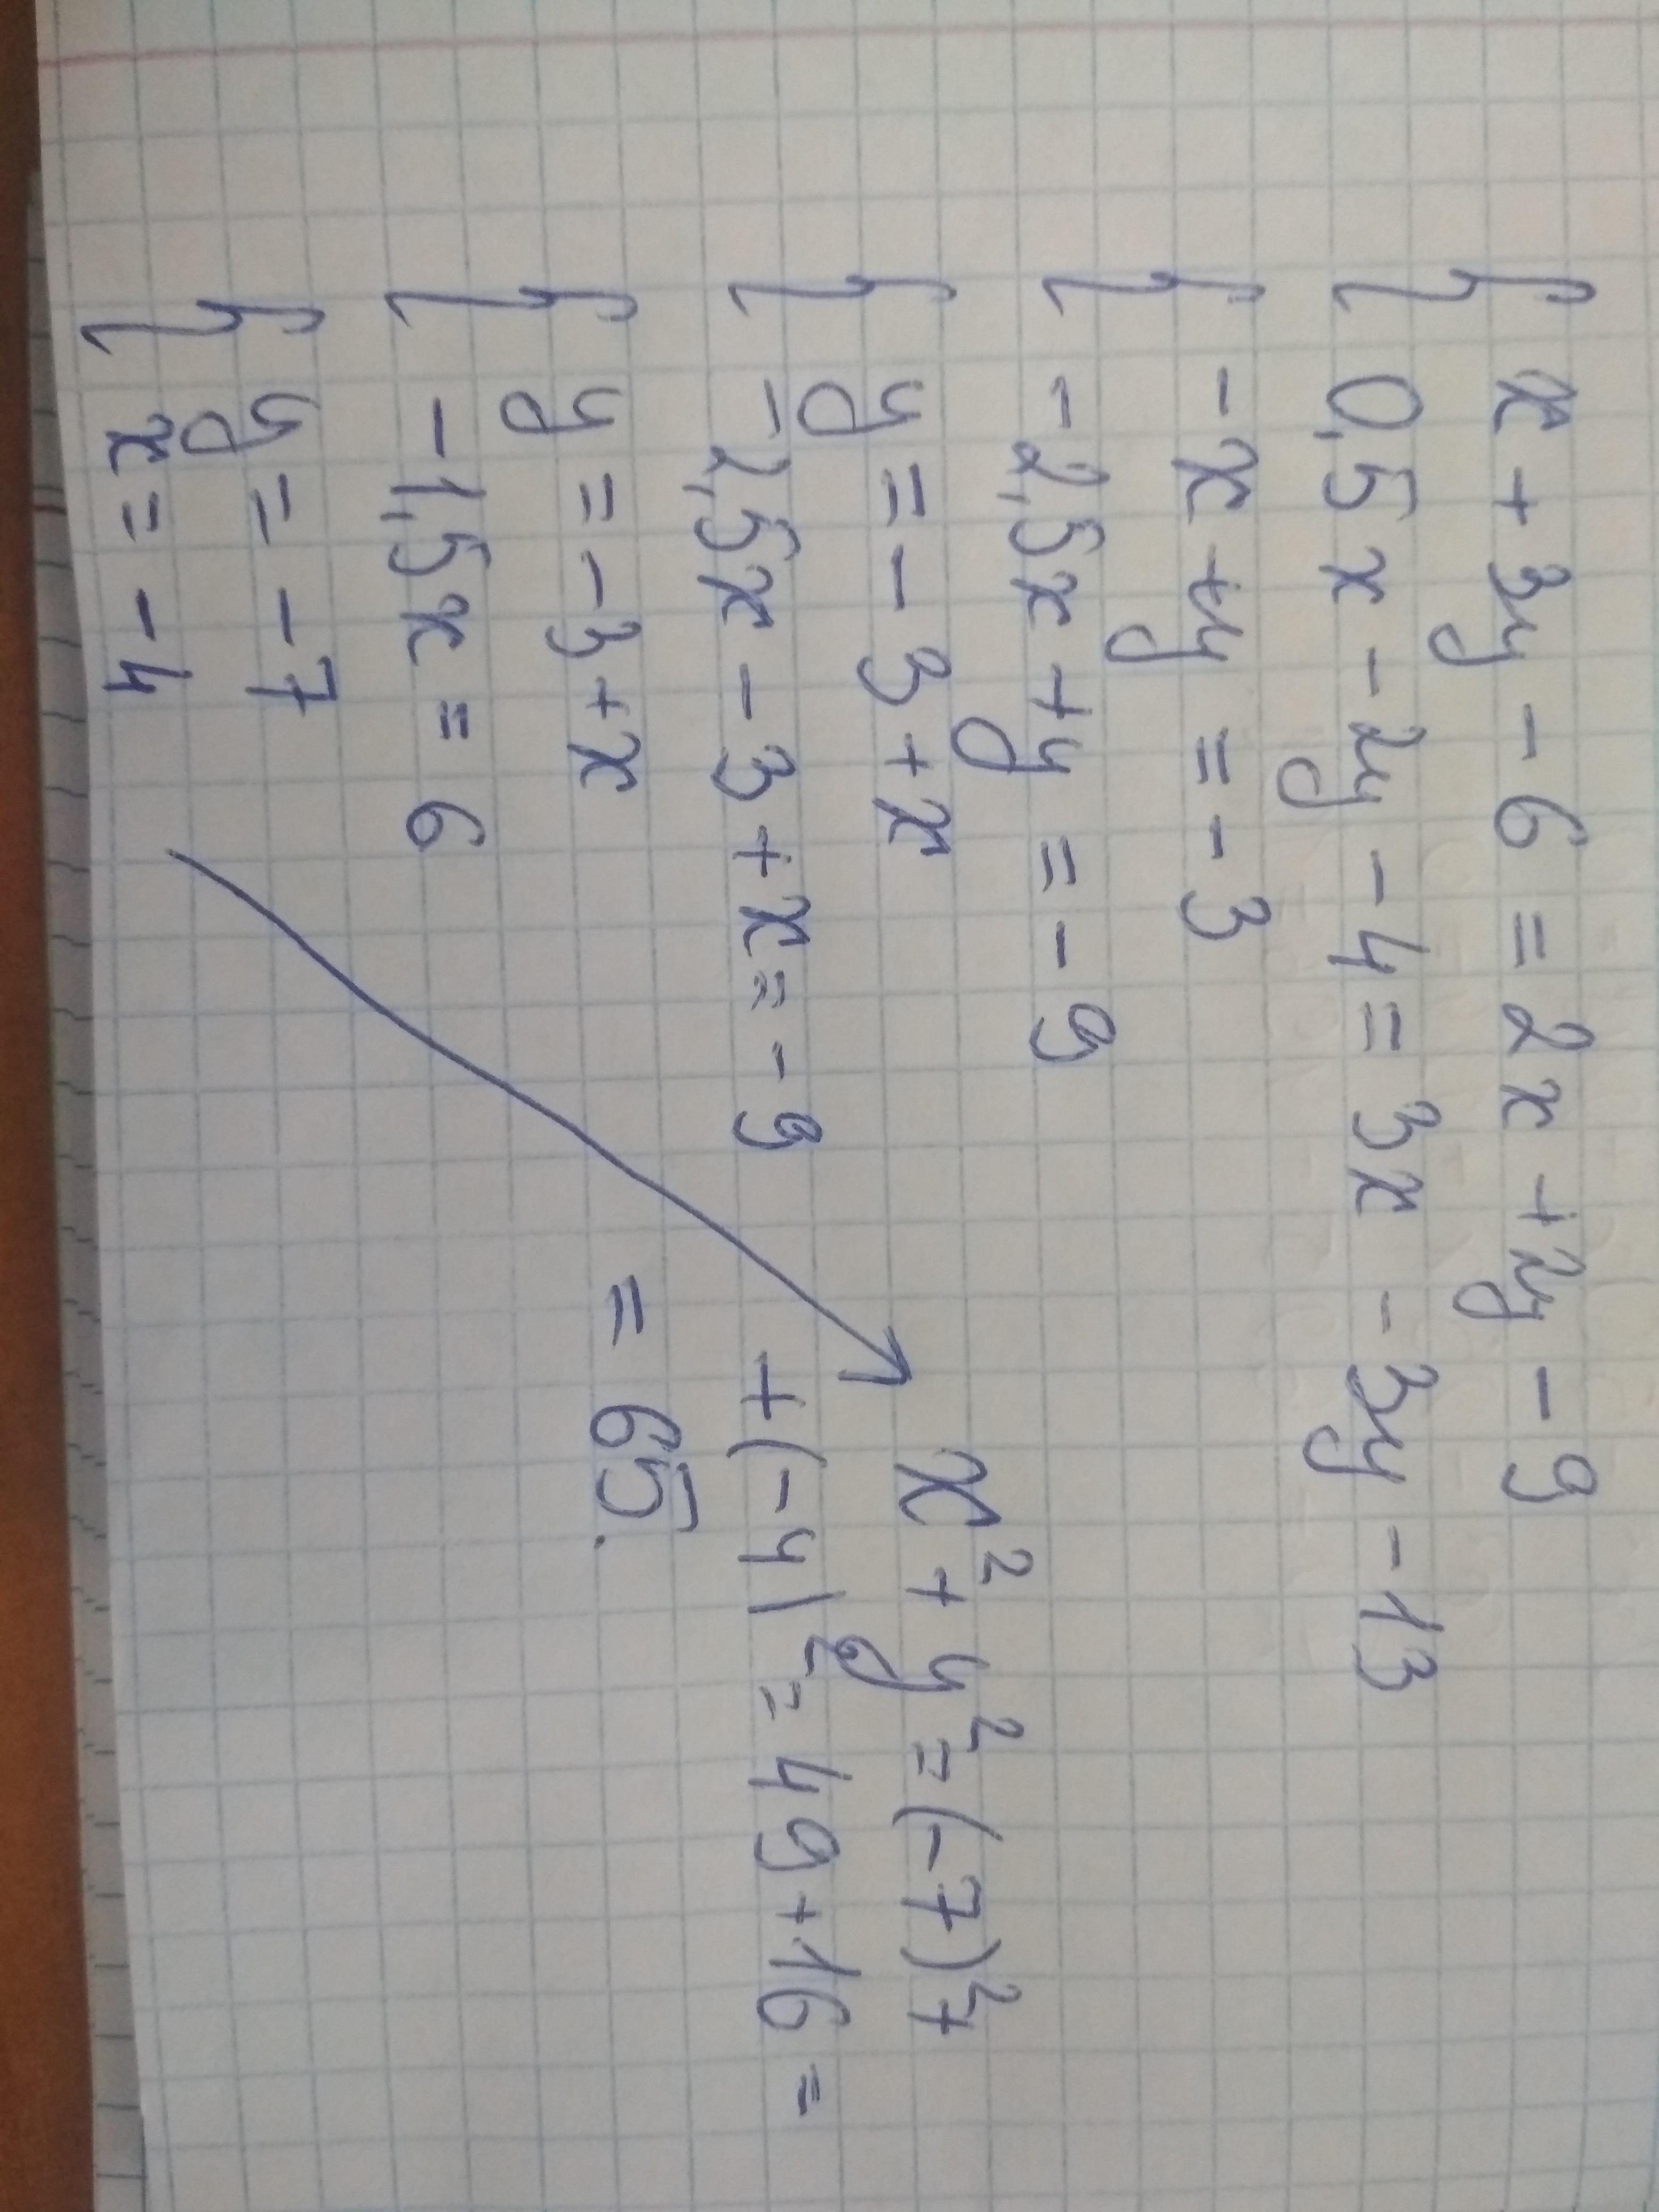 x + 3y - 6 = 2x + 2y - 9
0,5x - 2y - 4 = 3x - 3y - 13
-x + y = -3
-2,5x + y = -9
y = -3 + x
-2,5x - 3 + x = -9
y = -3 + x
-1,5x = 6
y = -7
x = -4
x² + y² = (-7)² +
+ (-4)² = 49 + 16 =
= 65.